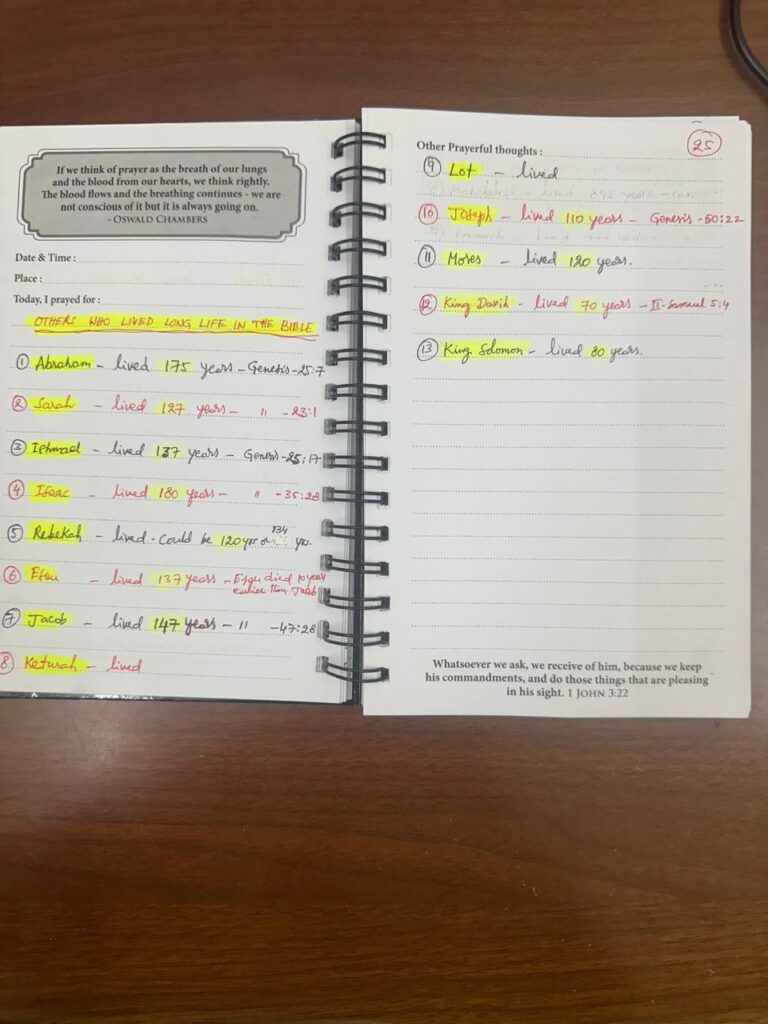 If we think of prayer as the breath of our lungs
and the blood from our hearts, we think rightly.
The blood flows and the breathing continues - we are
not conscious of it but it is always going on.
- OSWALD CHAMBERS
Date & Time :
Place :
Today, I prayed for :
OTHERS WHO LIVED LONG LIFE IN THE BIBLE
① Abraham - lived 175 years - Genesis - 25:7
② Sarah - lived 127 years - " - 23:1
③ Ishmael - lived 137 years - Genesis - 25:17
④ Isaac - lived 180 years - " - 35:28
⑤ Rebekah - lived - Could be 120 yrs or 134 yrs.
⑥ Esau - lived 137 years - Esau died 10 years
earlier than Jacob
⑦ Jacob - lived 147 years - " - 47:28
⑧ Keturah - lived
25
Other Prayerful thoughts :
⑨ Lot - lived
⑩ Joseph - lived 110 years - Genesis - 50:22
⑪ Moses - lived 120 years.
⑫ King David - lived 70 years - II - Samuel 5:4
⑬ King Solomon - lived 80 years.
Whatsoever we ask, we receive of him, because we keep
his commandments, and do those things that are pleasing
in his sight. 1 JOHN 3:22